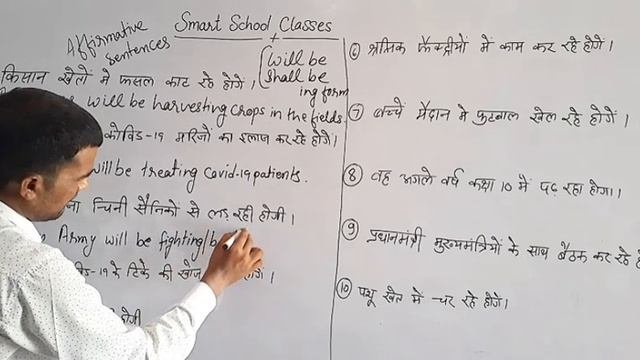 Smart School Classes
Affirmative
Sentences
will be
shall be
ing form
किसान खेतों मे फसल काट रहे होगें।
will be harvesting crops in the fields.
कोविड-19 मरिजों का इलाज कर रहे होगें।
will be treating Covid-19 patients.
चिनी सैनिकों से लड़ रही होगी।
Army will be fighting/b
के टिके की खोज
होगी
⑥ श्रमिक फैक्ट्रीयों में काम कर रहे होगें।
⑦ बच्चें मैदान मे फुटबाल खेल रहे होगें।
⑧ वह अगले वर्ष कक्षा 10 में पढ़ रहा होगा।
⑨ प्रधानमंत्री मुख्यमंत्रियों के साथ बैठक कर रहे
⑩ पशू खेत में चर रहे होगें।